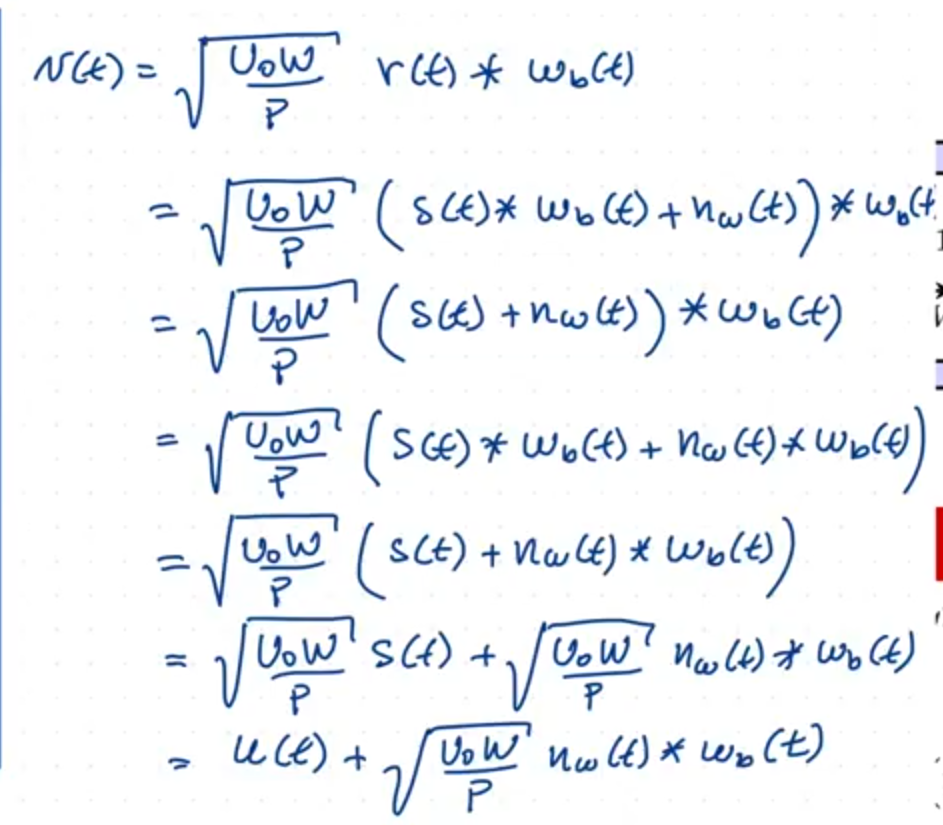 v(t) = √(U₀W/P) r(t) * w_b(t)
= √(U₀W/P) ( s(t) * w_b(t) + n_w(t) ) * w_b(t
= √(U₀W/P) ( s(t) + n_w(t) ) * w_b(t)
= √(U₀W/P) ( s(t) * w_b(t) + n_w(t) * w_b(t) )
= √(U₀W/P) ( s(t) + n_w(t) * w_b(t) )
= √(U₀W/P) s(t) + √(U₀W/P) n_w(t) * w_b(t)
= u(t) + √(U₀W/P) n_w(t) * w_b(t)